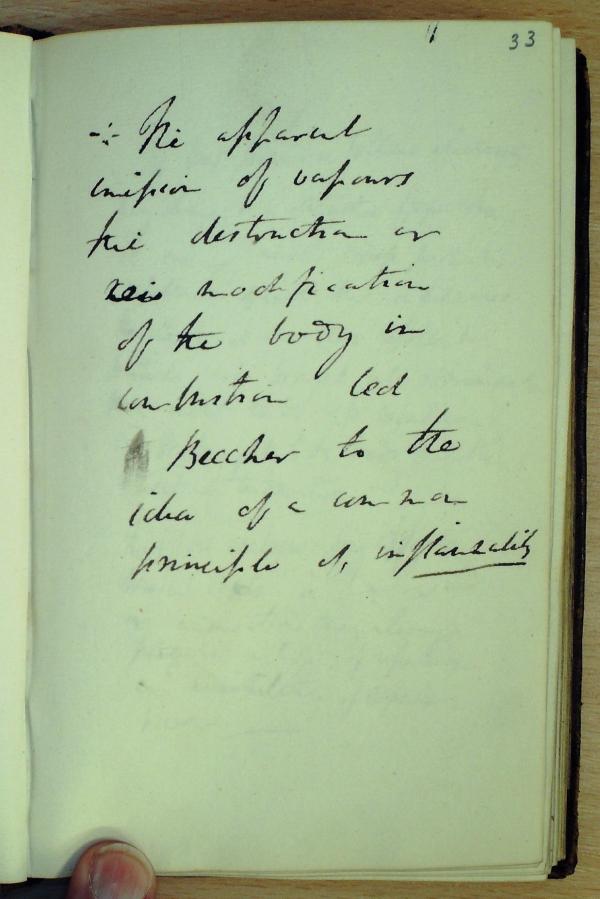 33
-:- The apparent
emission of vapours
the destruction or
modification
of the body in
combustion led
Beccher to the
idea of a common
principle of inflammability